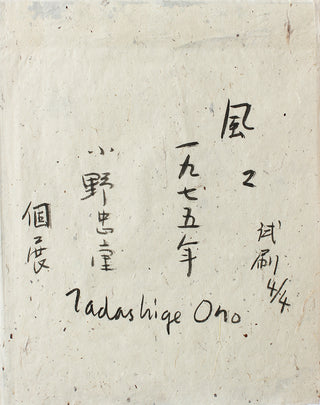 風 2
試刷 4/4
一九七五年
小野忠重
個展
Tadashige Ono